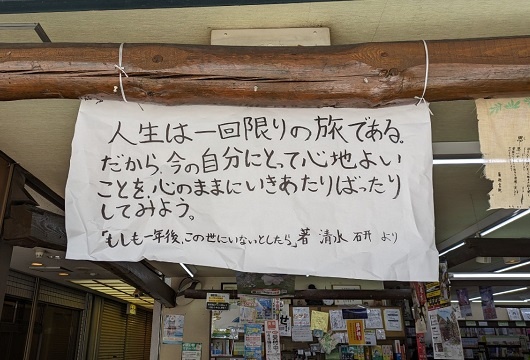 人生は一回限りの旅である。
だから、今の自分にとって心地よい
ことを、心のままにいきあたりばったり
してみよう。
「もしも一年後、この世にいないとしたら」著 清水 研 より